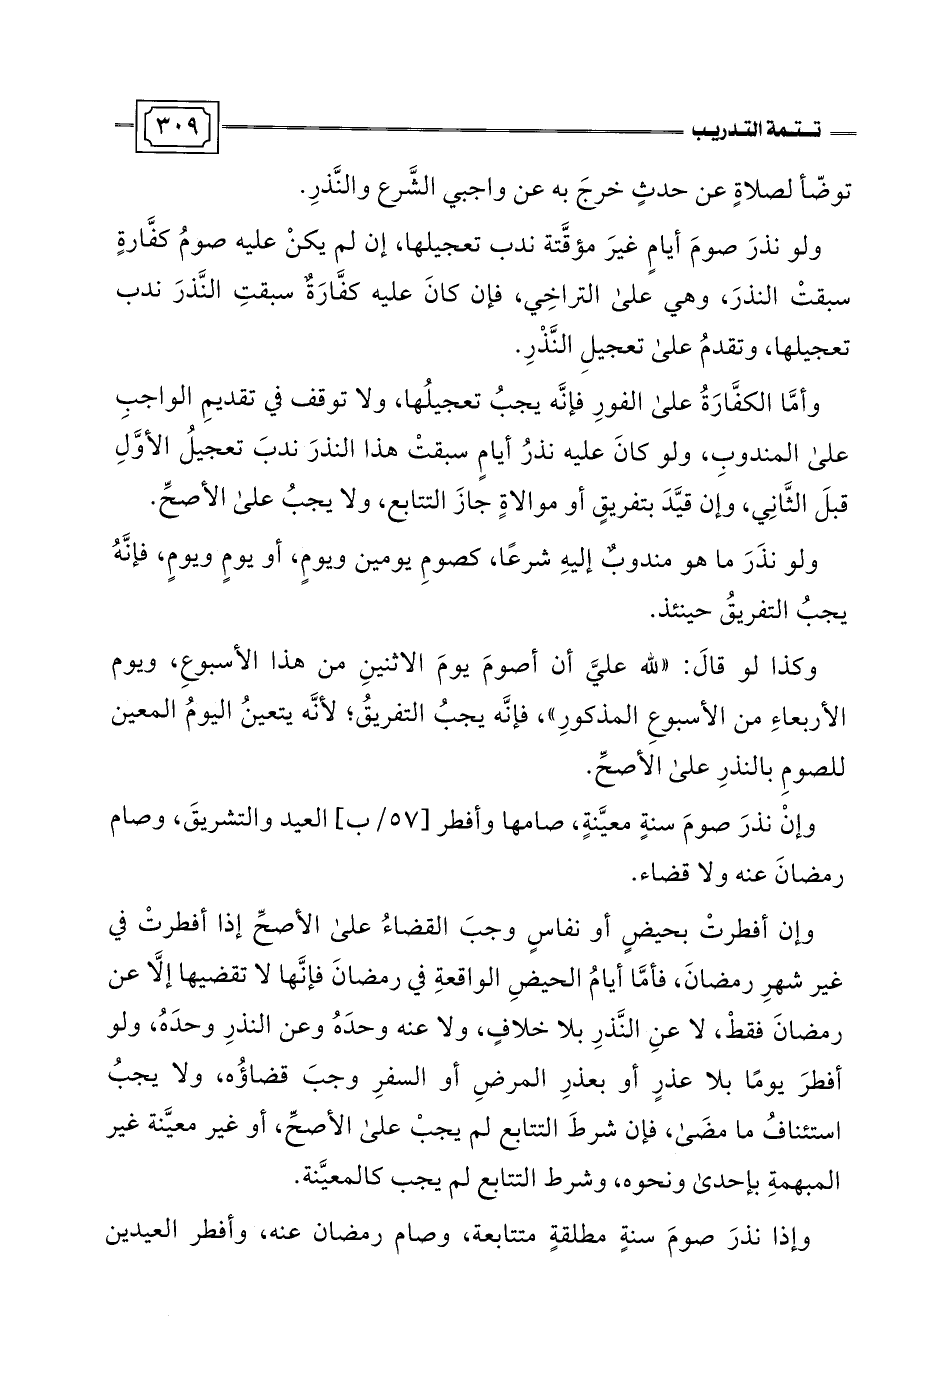 تـتـمة التـدريب
٣٠٩
توضّأ لصلاةٍ عن حدثٍ خرجَ به عن واجبي الشَّرع والنَّذرِ.
ولو نذرَ صومَ أيامٍ غيرَ مؤقَّتة ندب تعجيلها، إن لم يكنْ عليه صومُ كفَّارةٍ
سبقتْ النذرَ، وهي علىٰ التراخِي، فإن كانَ عليه كفَّارَةٌ سبقتِ النَّذرَ ندب
تعجيلها، وتقدمُ علىٰ تعجيلِ النَّذْرِ.
وأمَّا الكفَّارَةُ علىٰ الفورِ فإنَّه يجبُ تعجيلُها، ولا توقف في تقديمِ الواجبِ
علىٰ المندوبِ، ولو كانَ عليه نذرُ أيامٍ سبقتْ هذا النذرَ ندبَ تعجيلُ الأوَّلِ
قبلَ الثَّانِي، وإن قيَّدَ بتفريقٍ أو موالاةٍ جازَ التتابع، ولا يجبُ علىٰ الأصحِّ.
ولو نذَرَ ما هو مندوبٌ إليهِ شرعًا، كصومِ يومين ويومٍ، أو يومٍ ويومٍ، فإنَّهُ
يجبُ التفريقُ حينئذ.
وكذا لو قالَ: «لله عليَّ أن أصومَ يومَ الاثنينِ من هذا الأسبوعِ، ويوم
الأربعاءِ من الأسبوعِ المذكورِ»، فإنَّه يجبُ التفريقُ؛ لأنَّه يتعينُ اليومُ المعين
للصومِ بالنذرِ علىٰ الأصحِّ.
وإنْ نذرَ صومَ سنةٍ معيَّنةٍ، صامها وأفطر [٥٧/ ب] العيد والتشريقَ، وصام
رمضانَ عنه ولا قضاء.
وإن أفطرتْ بحيضٍ أو نفاسٍ وجبَ القضاءُ علىٰ الأصحِّ إذا أفطرتْ في
غير شهرِ رمضانَ، فأمَّا أيامُ الحيضِ الواقعةِ في رمضانَ فإنَّها لا تقضيها إلَّا عن
رمضانَ فقطْ، لا عنِ النَّذرِ بلا خلافٍ، ولا عنه وحدَهُ وعن النذرِ وحدَهُ، ولو
أفطرَ يومًا بلا عذرٍ أو بعذرِ المرضِ أو السفرِ وجبَ قضاؤُه، ولا يجبُ
استئنافُ ما مضَىٰ، فإن شرطَ التتابع لم يجبْ علىٰ الأصحِّ، أو غير معيَّنة غير
المبهمةِ بإحدىٰ ونحوه، وشرط التتابع لم يجب كالمعيَّنة.
وإذا نذرَ صومَ سنةٍ مطلقةٍ متتابعة، وصام رمضان عنه، وأفطر العيدين